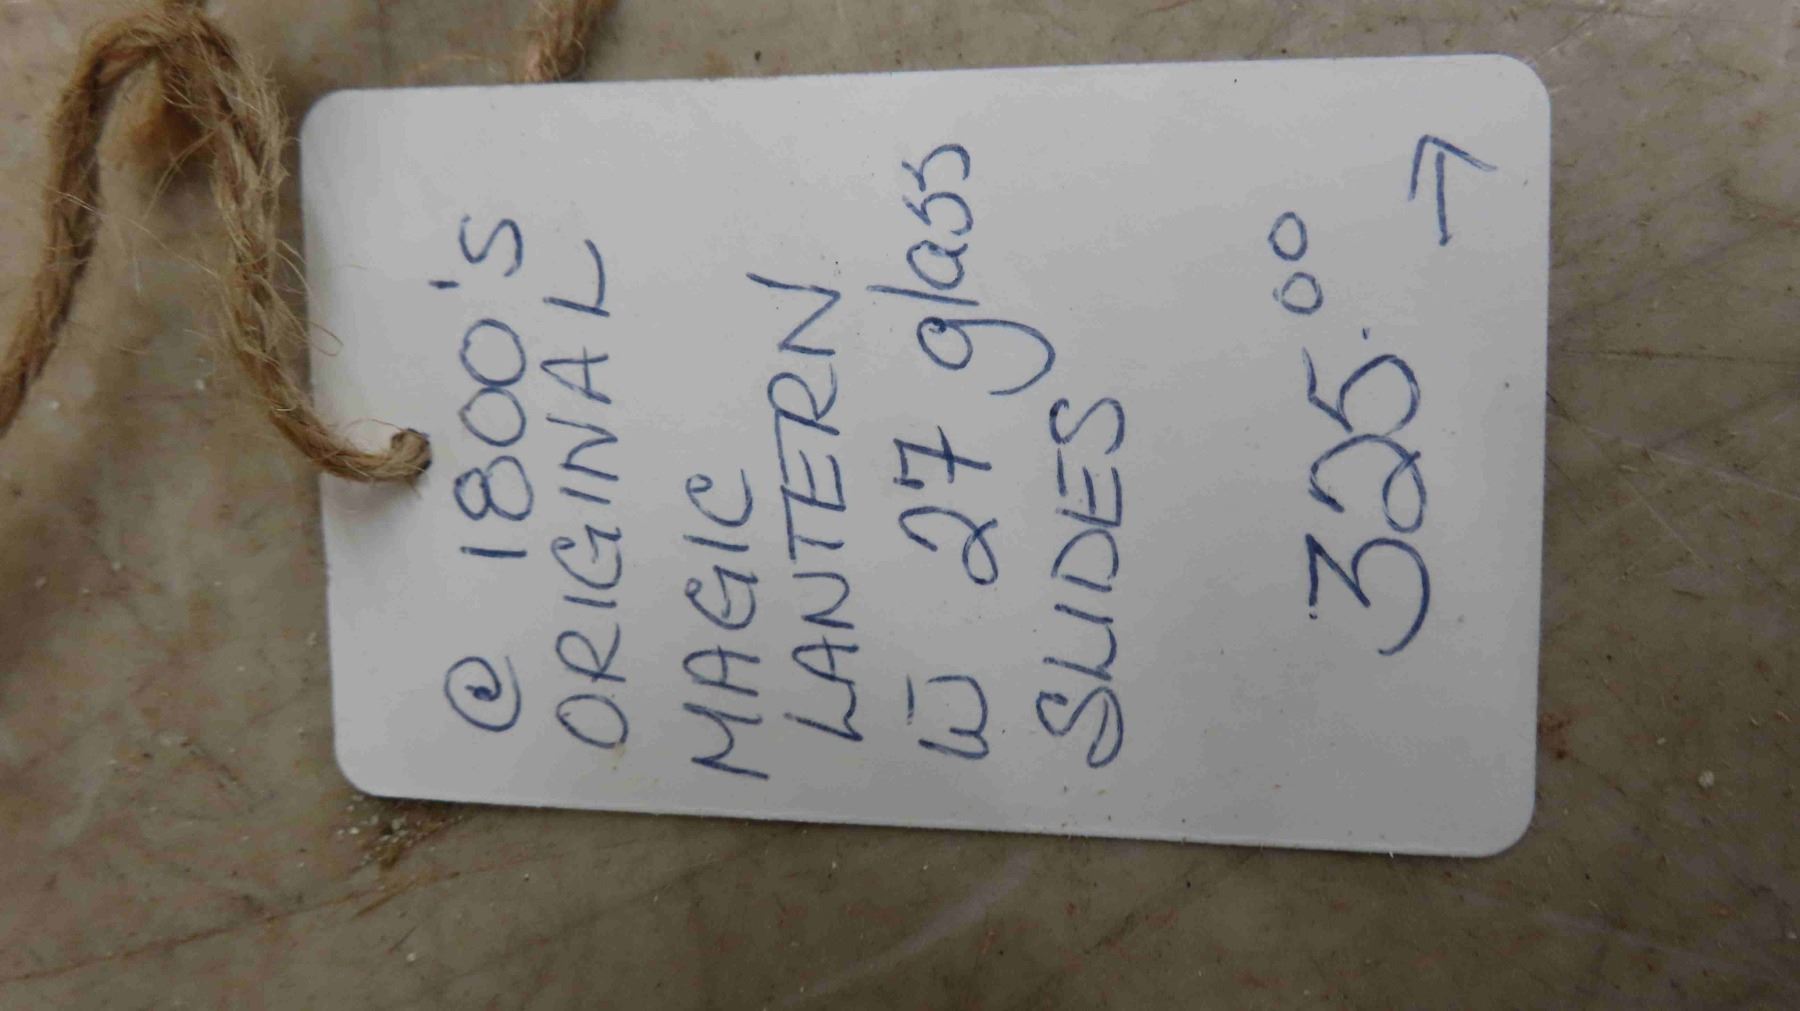 © 1800's
ORIGINAL
MAGIC
LANTERN
w̄ 27 glass
SLIDES
325.00
→